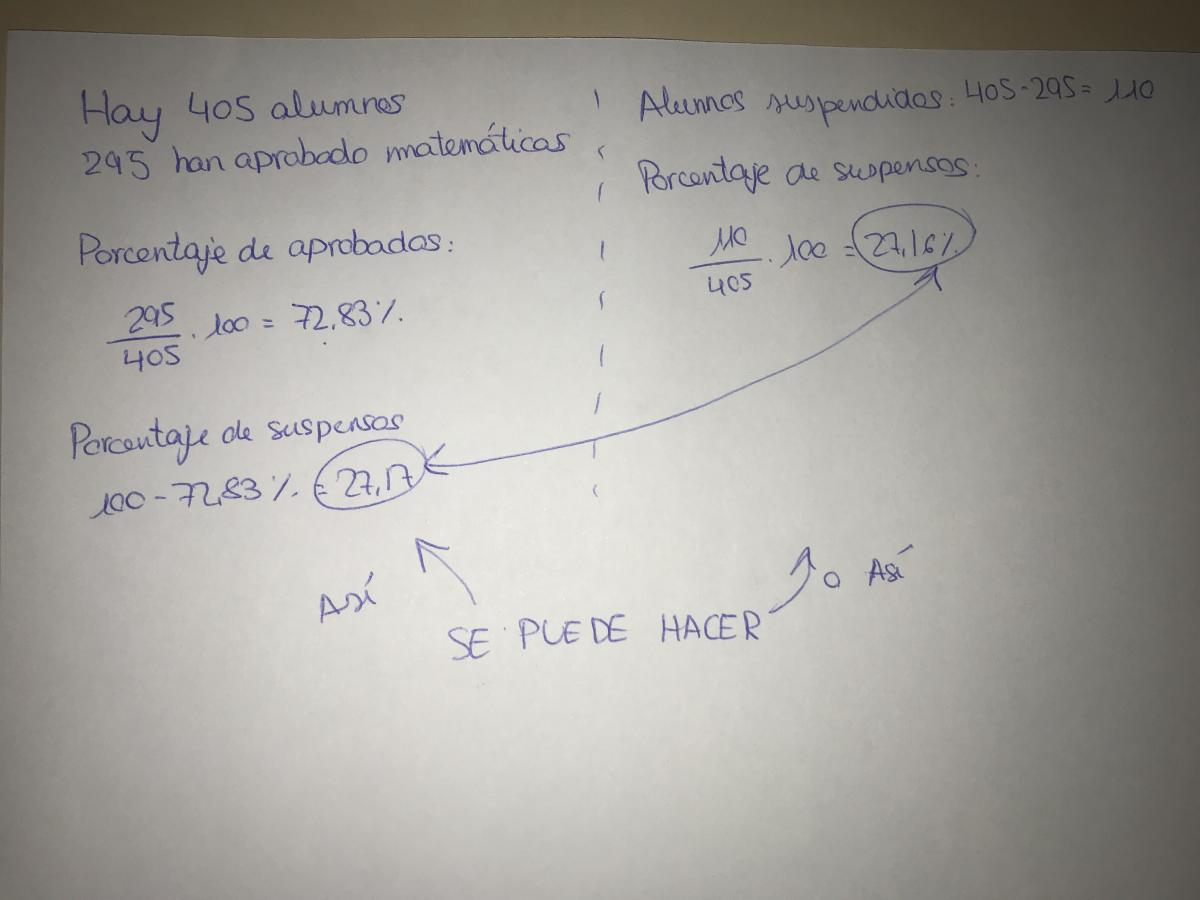 Hay 405 alumnos
295 han aprobado matemáticas
Porcentaje de aprobados:
295/405 · 100 = 72,83%.
Porcentaje de suspensos
100 - 72,83%. = 27,17
Alumnos suspendidos: 405-295= 110
Porcentaje de suspensos:
110/405 · 100 = 27,16%.
Así
o Así
SE PUEDE HACER